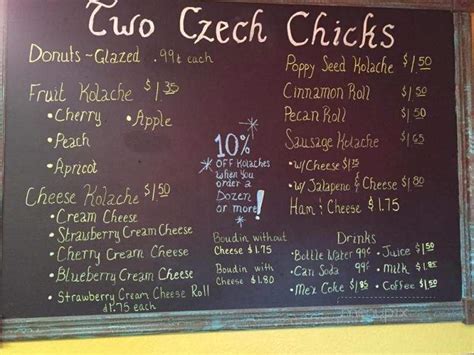 Two Czech Chicks
Donuts ~ Glazed .99¢ each
Fruit Kolache $1.35
• Cherry • Apple
• Peach
• Apricot
Cheese Kolache $1.50
• Cream Cheese
• Strawberry Cream Cheese
• Cherry Cream Cheese
• Blueberry Cream Cheese
• Strawberry Cream Cheese Roll
$1.75 each
10%
OFF Kolaches
when You
order a
Dozen
or more!
Boudin without
Cheese $1.75
Boudin with
Cheese $1.80
Poppy Seed Kolache $1.50
Cinnamon Roll
Pecan Roll
Sausage Kolache $1.65
• w/Cheese
• w/ Jalapeno & Cheese $1.80
Ham & Cheese $1.75
Drinks
• Bottle Water 99¢
• Can Soda 99¢
• Mex Coke $1.85
• Juice $1.50
• Milk
• Coffee $1.50